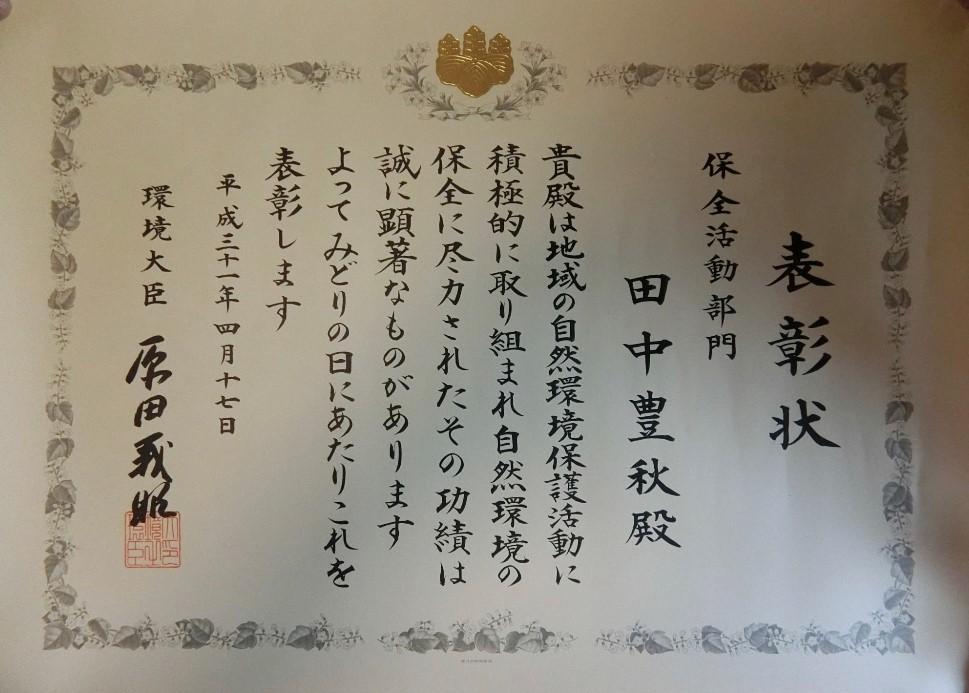 表彰状
保全活動部門
田中豊秋殿
貴殿は地域の自然環境保護活動に
積極的に取り組まれ自然環境の
保全に尽力されたその功績は
誠に顕著なものがあります
よってみどりの日にあたりこれを
表彰します
平成三十一年四月十七日
環境大臣 原田義昭